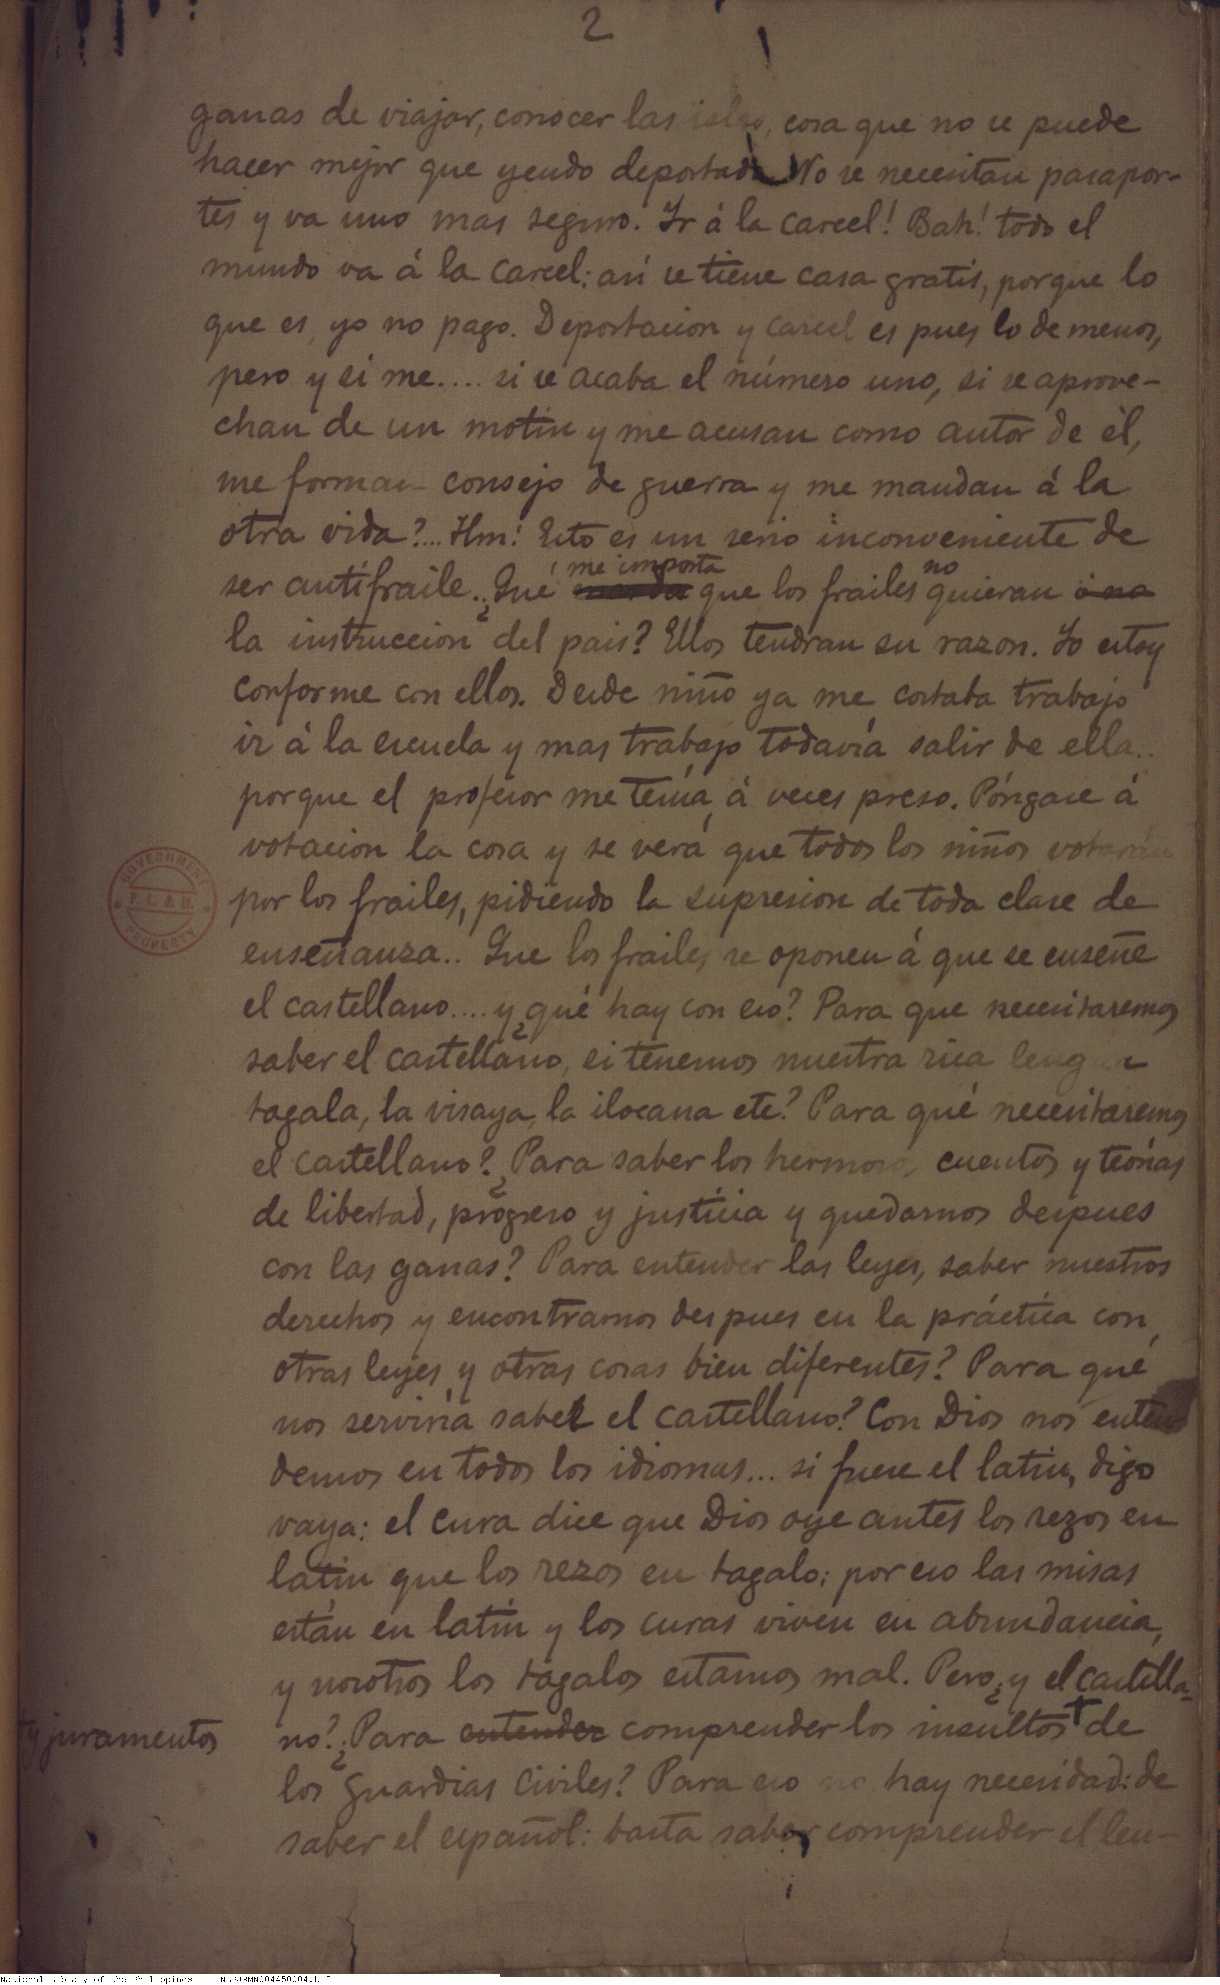 2
ganas de viajar, conocer las islas, cosa que no se puede
hacer mejor que yendo deportado. No se necesitan pasapor-
tes y va uno mas seguro. Ir á la carcel! Bah! todo el
mundo va á la carcel: así se tiene casa gratis, porque lo
que es, yo no pago. Deportacion y carcel es pues lo de menos,
pero y si me.... si se acaba el número uno, si se aprove-
chan de un motin y me acusan como autor de él,
me forman consejo de guerra y me mandan á la
otra vida?... Hm! Esto es un serio inconveniente de
me importa no
ser antifraile.. ¿Qué que los frailes quieran ó no
la instruccion del pais? Ellos tendran su razon. Yo estoy
conforme con ellos. Desde niño ya me costaba trabajo
ir á la escuela y mas trabajo todavía salir de ella..
porque el profesor me tenía á veces preso. Póngase á
votacion la cosa y se verá que todos los niños votarán
por los frailes, pidiendo la supresion de toda clase de
enseñanza.. Que los frailes se oponen á que se enseñe
el castellano.... y ¿qué hay con eso? Para que necesitaremos
saber el castellano, si tenemos nuestra rica lengua
tagala, la visaya, la ilocana etc? Para qué necesitaremos
el castellano? ¿Para saber los hermosos cuentos y teorías
de libertad, progreso y justicia y quedarnos despues
con las ganas? Para entender las leyes, saber nuestros
derechos y encontrarnos despues en la práctica con
otras leyes y otras cosas bien diferentes? Para qué
nos serviría saber el castellano? Con Dios nos enten
demos en todos los idiomas... si fuese el latin, digo
vaya: el cura dice que Dios oye antes los rezos en
latin que los rezos en tagalo: por eso las misas
están en latin y los curas viven en abundancia,
y nosotros los tagalos estamos mal. Pero ¿y el castella-
no? ¿Para entender comprender los insultos † de
† y juramentos
los Guardias Civiles? Para eso no hay necesidad: de
saber el español: basta saber comprender el len-
GOVERNMENT
P. L. & M.
PROPERTY
National Library of the Philippines